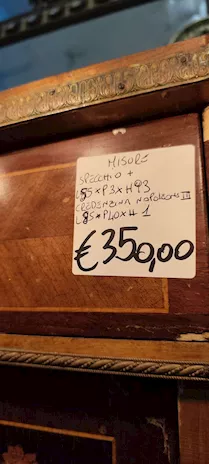 MISURE
SPECCHIO +
L85xP3xH93
CREDENZINA NAPOLEONE III
L85xP40xH 1
€350,00